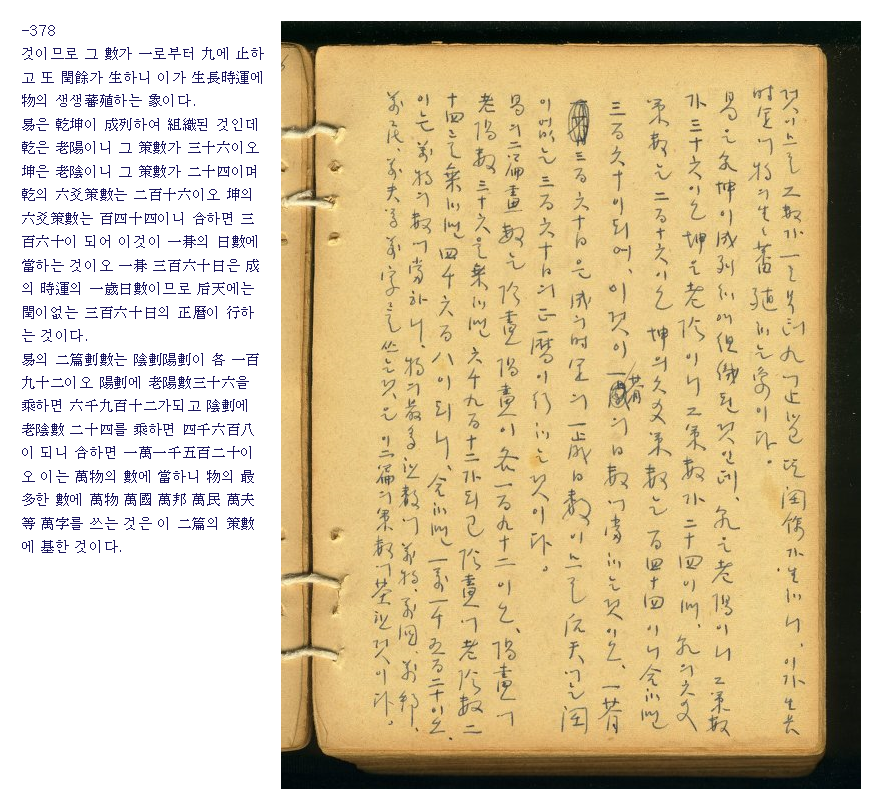 -378
것이므로 그 數가 一로부터 九에 止하
고 또 閏餘가 生하니 이가 生長時運에
物의 생생蕃殖하는 象이다.
易은 乾坤이 成列하여 組織된 것인데
乾은 老陽이니 그 策數가 三十六이오
坤은 老陰이니 그 策數가 二十四이며
乾의 六爻策數는 二百十六이오 坤의
六爻策數는 百四十四이니 合하면 三
百六十이 되어 이것이 一朞의 日數에
當하는 것이오 一朞 三百六十日은 成
의 時運의 一歲日數이므로 后天에는
閏이없는 三百六十日의 正曆이 行하
는 것이다.
易의 二篇劃數는 陰劃陽劃이 各 一百
九十二이오 陽劃에 老陽數三十六을
乘하면 六千九百十二가되고 陰劃에
老陰數 二十四를 乘하면 四千六百八
이 되니 合하면 一萬一千五百二十이
오 이는 萬物의 數에 當하니 物의 最
多한 數에 萬物 萬國 萬邦 萬民 萬夫
等 萬字를 쓰는 것은 이 二篇의 策數
에 基한 것이다.
것이므로 그 數가 一로부터 九에 止하고 또 閏餘가 生하니, 이가 生長
時運에 物의 生々蕃殖하는 象이다.
易은 乾坤이 成列하여 組織된 것인데, 乾은 老陽이니 그 策數
가 三十六이오 坤은 老陰이니 그 策數가 二十四이며, 乾의 六爻
策數는 二百十六이오 坤의 六爻策數는 百四十四이니 合하면
三百六十이 되어, 이것이 一朞의 日數에 當하는 것이오, 一朞
三百六十日은 成의 時運의 一歲日數이므로 后天에는 閏
이 없는 三百六十日의 正曆이 行하는 것이다.
易의 二篇畫數는 陰畫陽畫이 各 一百九十二이오, 陽畫에
老陽數 三十六을 乘하면 六千九百十二가 되고 陰畫에 老陰數 二
十四를 乘하면 四千六百八이 되니, 合하면 一萬一千五百二十이오.
이는 萬物의 數에 當하니, 物의 最多한 數에 萬物, 萬國, 萬邦,
萬民, 萬夫等 萬字를 쓰는 것은 이 二篇의 策數에 基한 것이다.